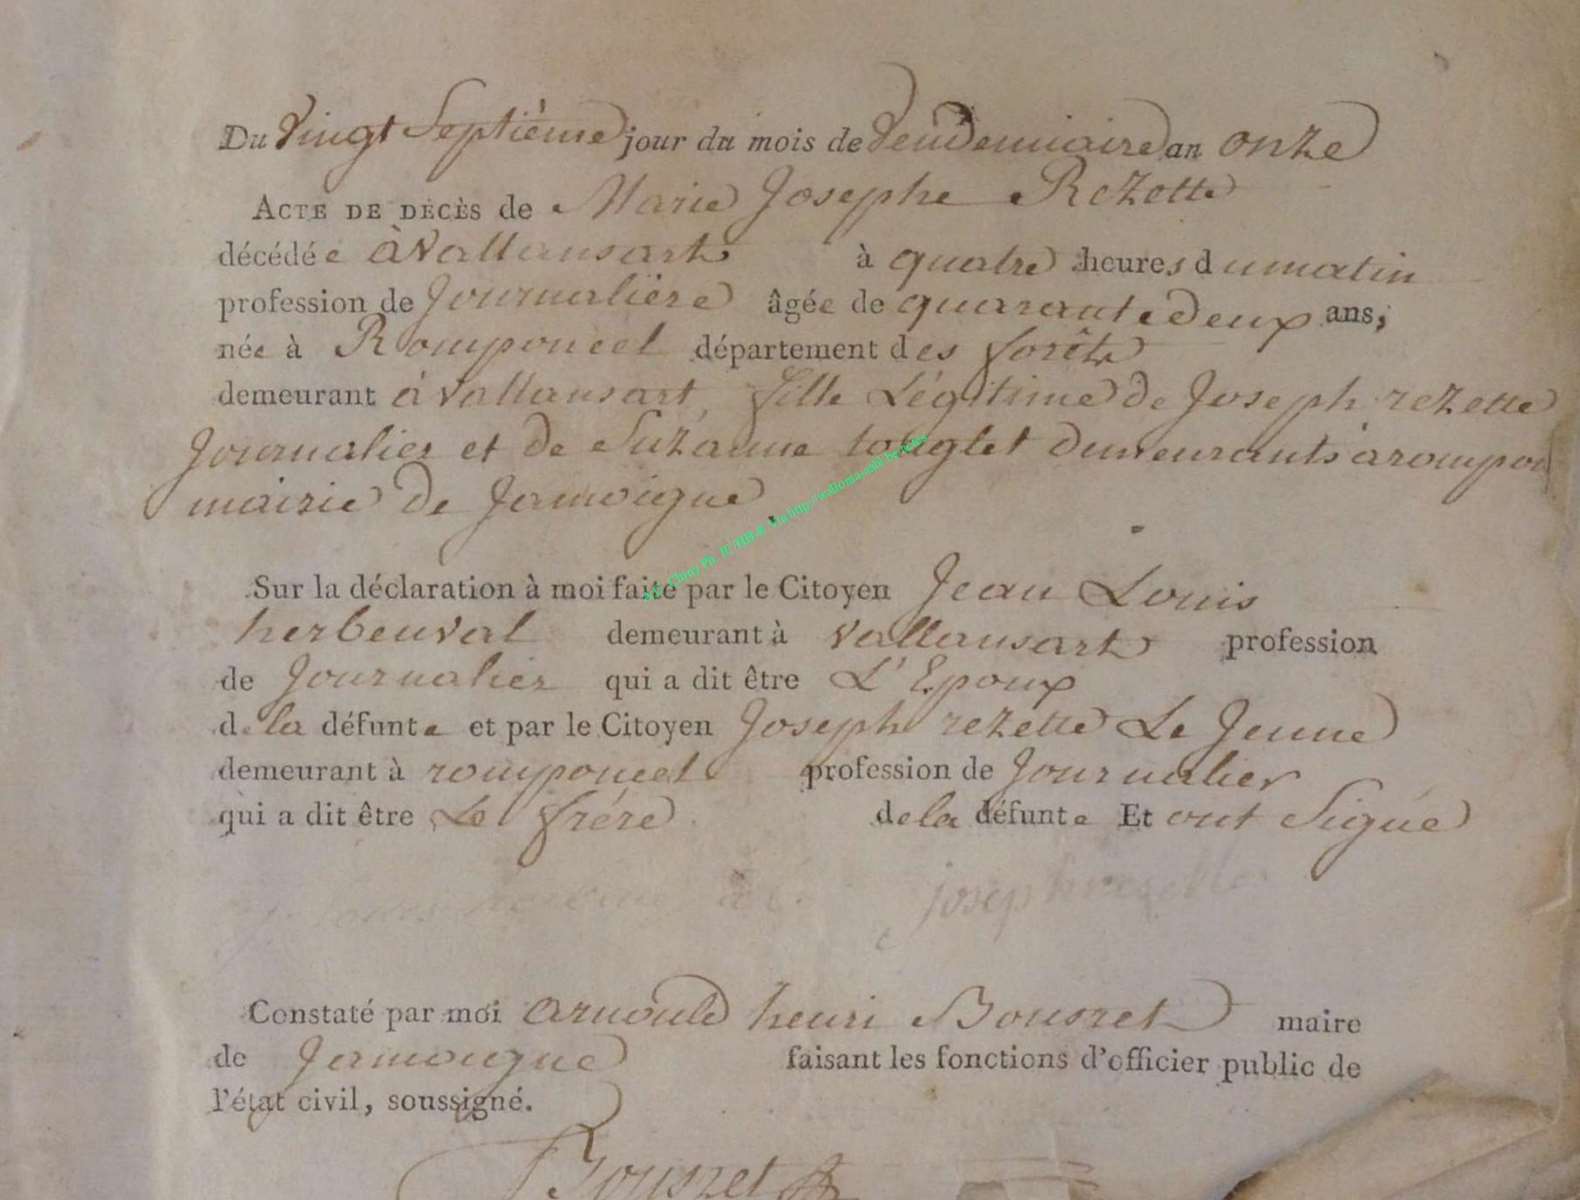 Du Vingt Septième jour du mois de Vendemiaire an onze
ACTE DE DÉCÈS de Marie Josephe Rezette
décédée à Vallansart à quatre heures du matin
profession de Journalière âgée de quarante deux ans,
née à Romponcel département des forêts
demeurant à Vallansart, fille Légitime de Joseph rezette
Journalier et de Suzanne demeurants à rompon
mairie de Jamoigne
Sur la déclaration à moi faite par le Citoyen Jean Louis
herbeuval demeurant à Vallansart profession
de Journalier qui a dit être L'Epoux
de la défunte et par le Citoyen Joseph rezette Le Jeune
demeurant à romponcel profession de Journalier
qui a dit être Le frére de la défunte Et ont Signé
joseph rezette
Constaté par moi arnould henri Bousret maire
de Jamoigne faisant les fonctions d'officier public de
l'état civil, soussigné.
Bousret